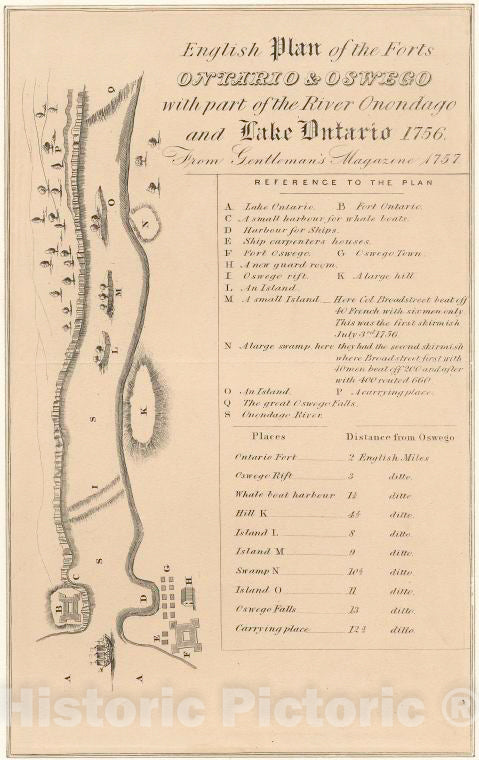 English Plan of the Forts
ONTARIO & OSWEGO
with part of the River Onondago
and Lake Ontario 1756.
From Gentleman's Magazine 1757
REFERENCE TO THE PLAN
A Lake Ontario. B Fort Ontario.
C A small harbour for whale boats.
D Harbour for Ships.
E Ship carpenters houses.
F Fort Oswego. G Oswego Town.
H A new guard room.
I Oswego rift. K A large hill
L An Island.
M A small Island _ Here Col. Broadstreet beat off
40 French with six men only
This was the first skirmish
July 3rd 1756
N A large swamp, here they had the second skirmish
where Broadstreet first with
40 men beat off 200 and after
with 400 routed 660
O An Island. P A carrying place.
Q The great Oswego Falls.
S Onondago River.
Places Distance from Oswego
Ontario Fort 2 English Miles
Oswego Rift 3 ditto.
Whale boat harbour 1½ ditto
Hill K 4½ ditto.
Island L 8 ditto
Island M 9 ditto.
Swamp N 10½ ditto.
Island O 11 ditto.
Oswego Falls 13 ditto.
Carrying place 12¾ ditto.
Q
P
O
N
M
L
K
S
I
S
C
B
D
G
H
E
F
A
A
Historic Pictoric ®